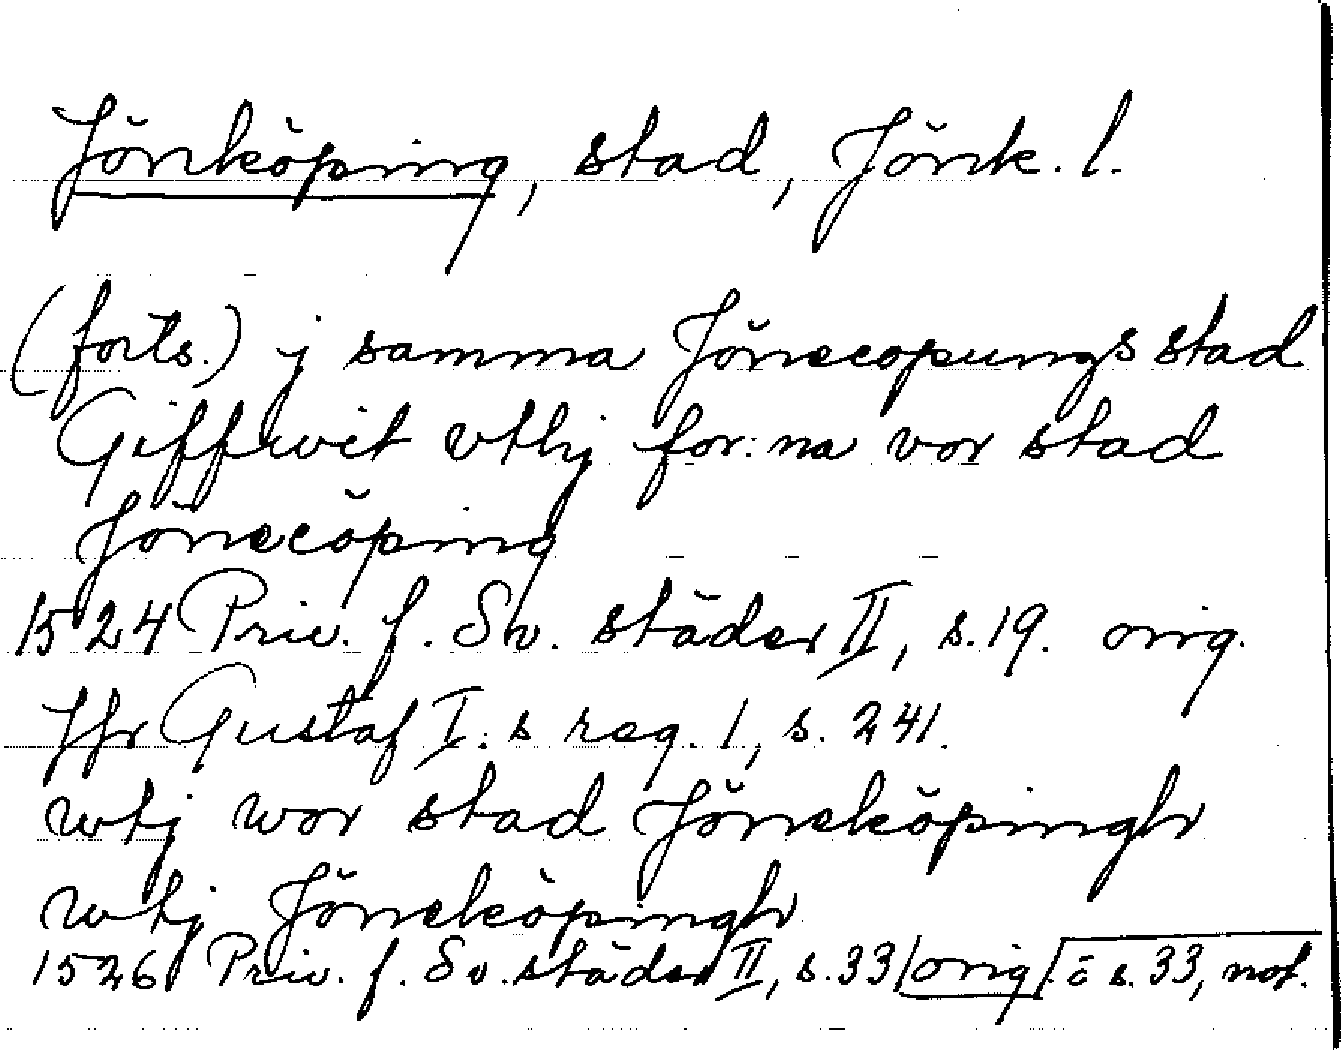 Jönköping, stad, Jönk. l.
(forts.) j samma Jönecopungs stad
Giffwit vthj for:na vor stad
Jönecöping
1524 Priv. f. Sv. städer II, s. 19. orig.
Jfr Gustaf I:s reg. 1, s. 241.
wtj wor stad Jöneköpingh
wtj Jöneköpingh
1526 Priv. f. Sv. städer II, s. 33 /orig/. o s. 33, not.